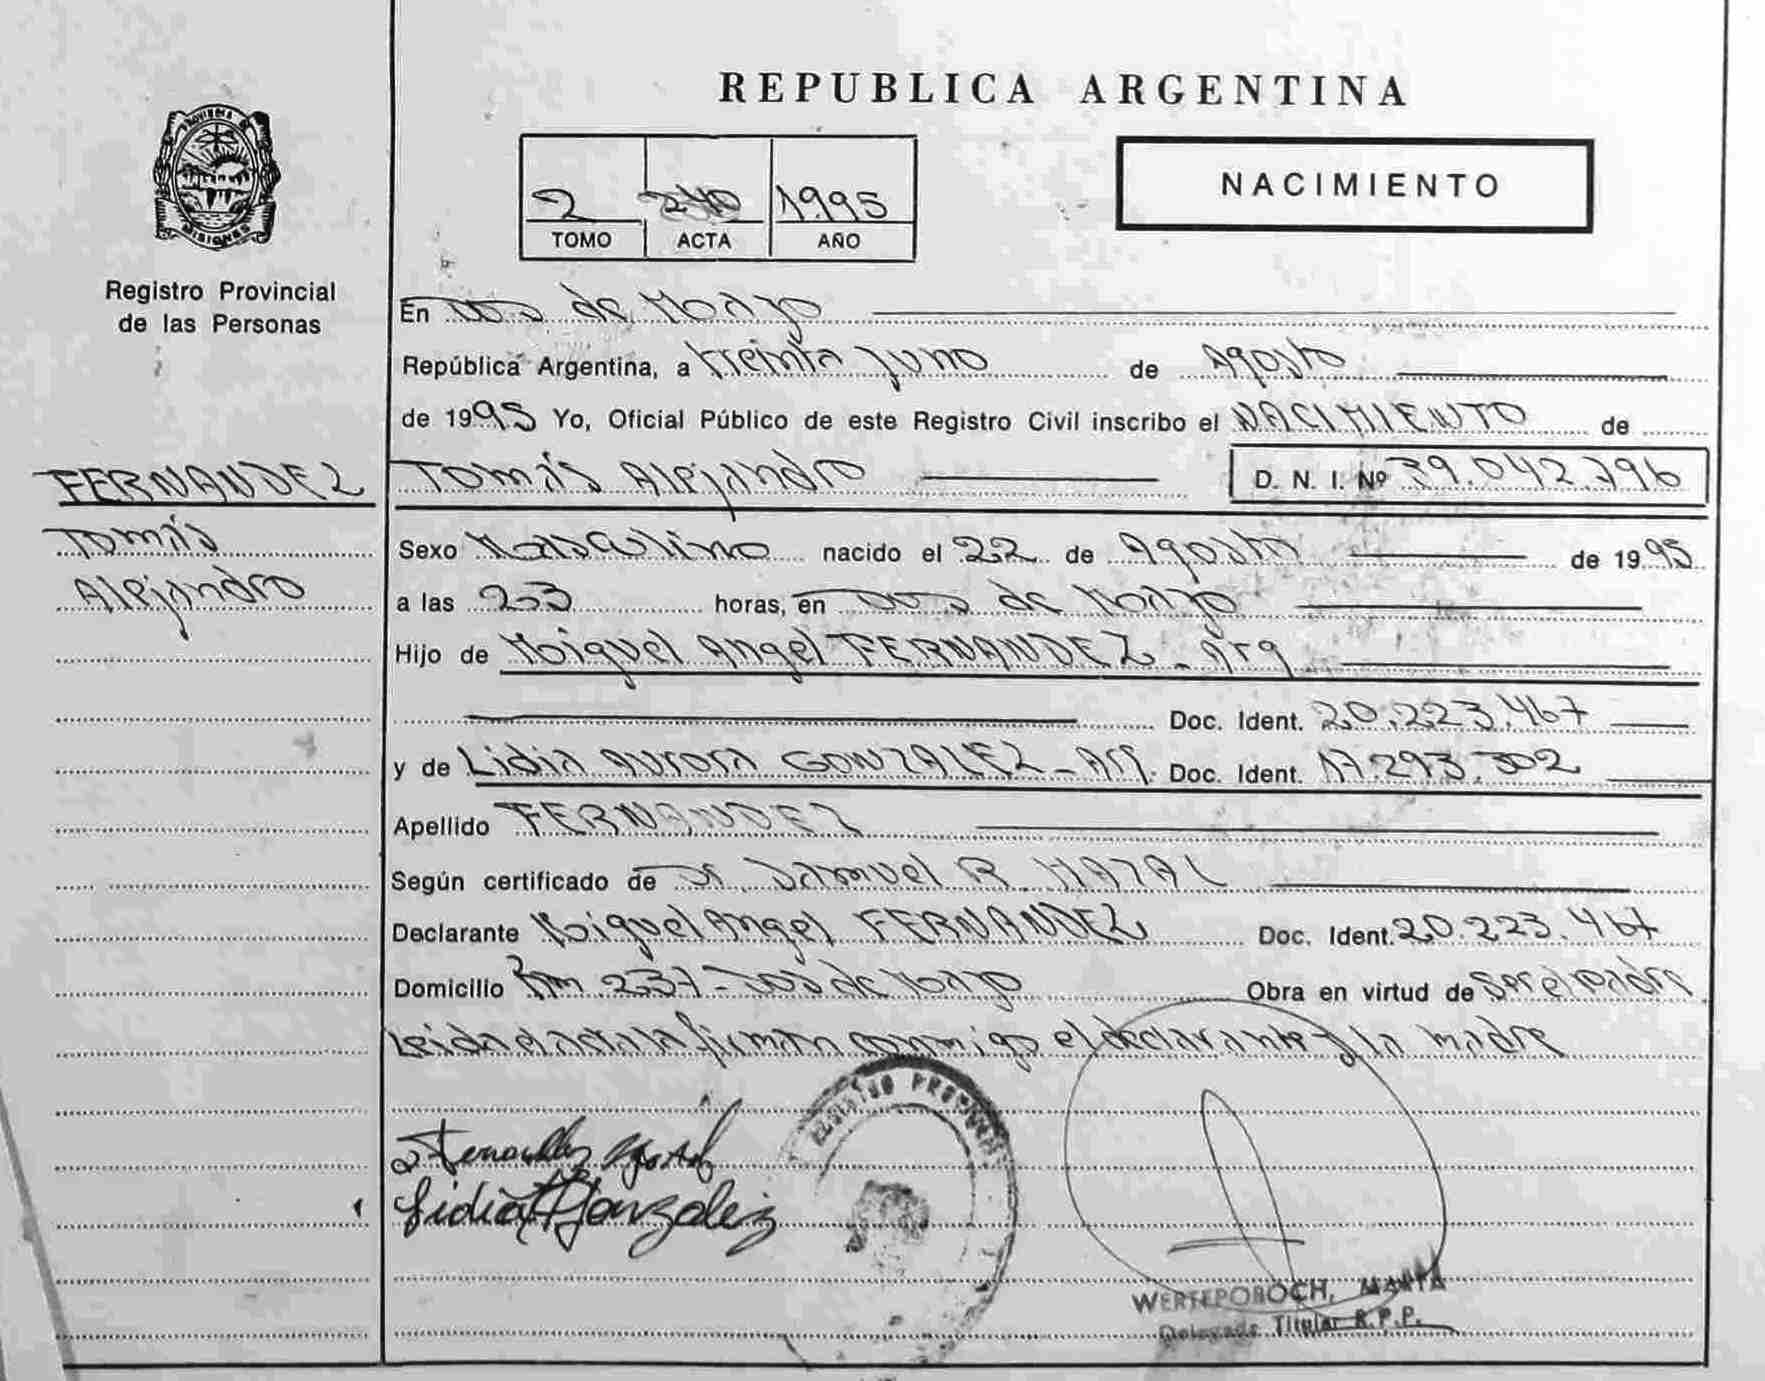 REPUBLICA ARGENTINA
PROVINCIA DE
MISIONES
Registro Provincial
de las Personas
2 240 1995
TOMO ACTA AÑO
NACIMIENTO
En Dos de Mayo
República Argentina, a treinta y uno de Agosto
de 1995 Yo, Oficial Público de este Registro Civil inscribo el NACIMIENTO de
FERNANDEZ
Tomás
Alejandro
Tomás Alejandro D. N. I. Nº 39.042.796
Sexo Masculino nacido el 22 de Agosto de 1995
a las 23 horas, en Dos de Mayo
Hijo de Miguel Angel FERNANDEZ - Arg
Doc. Ident. 20.223.467
y de Lidia Aurora GONZALEZ - Arg. Doc. Ident. 17.293.302
Apellido FERNANDEZ
Según certificado de Dr. Samuel R. MAZAL
Declarante Miguel Angel FERNANDEZ Doc. Ident. 20.223.467
Domicilio Km 237 - Dos de Mayo Obra en virtud de ser el padre
Leida el acta la firman conmigo el declarante y la madre
REGISTRO PROVINCIAL
Lidia A Gonzalez
WERTEPOROCH, MARTA
Delegada Titular R.P.P.